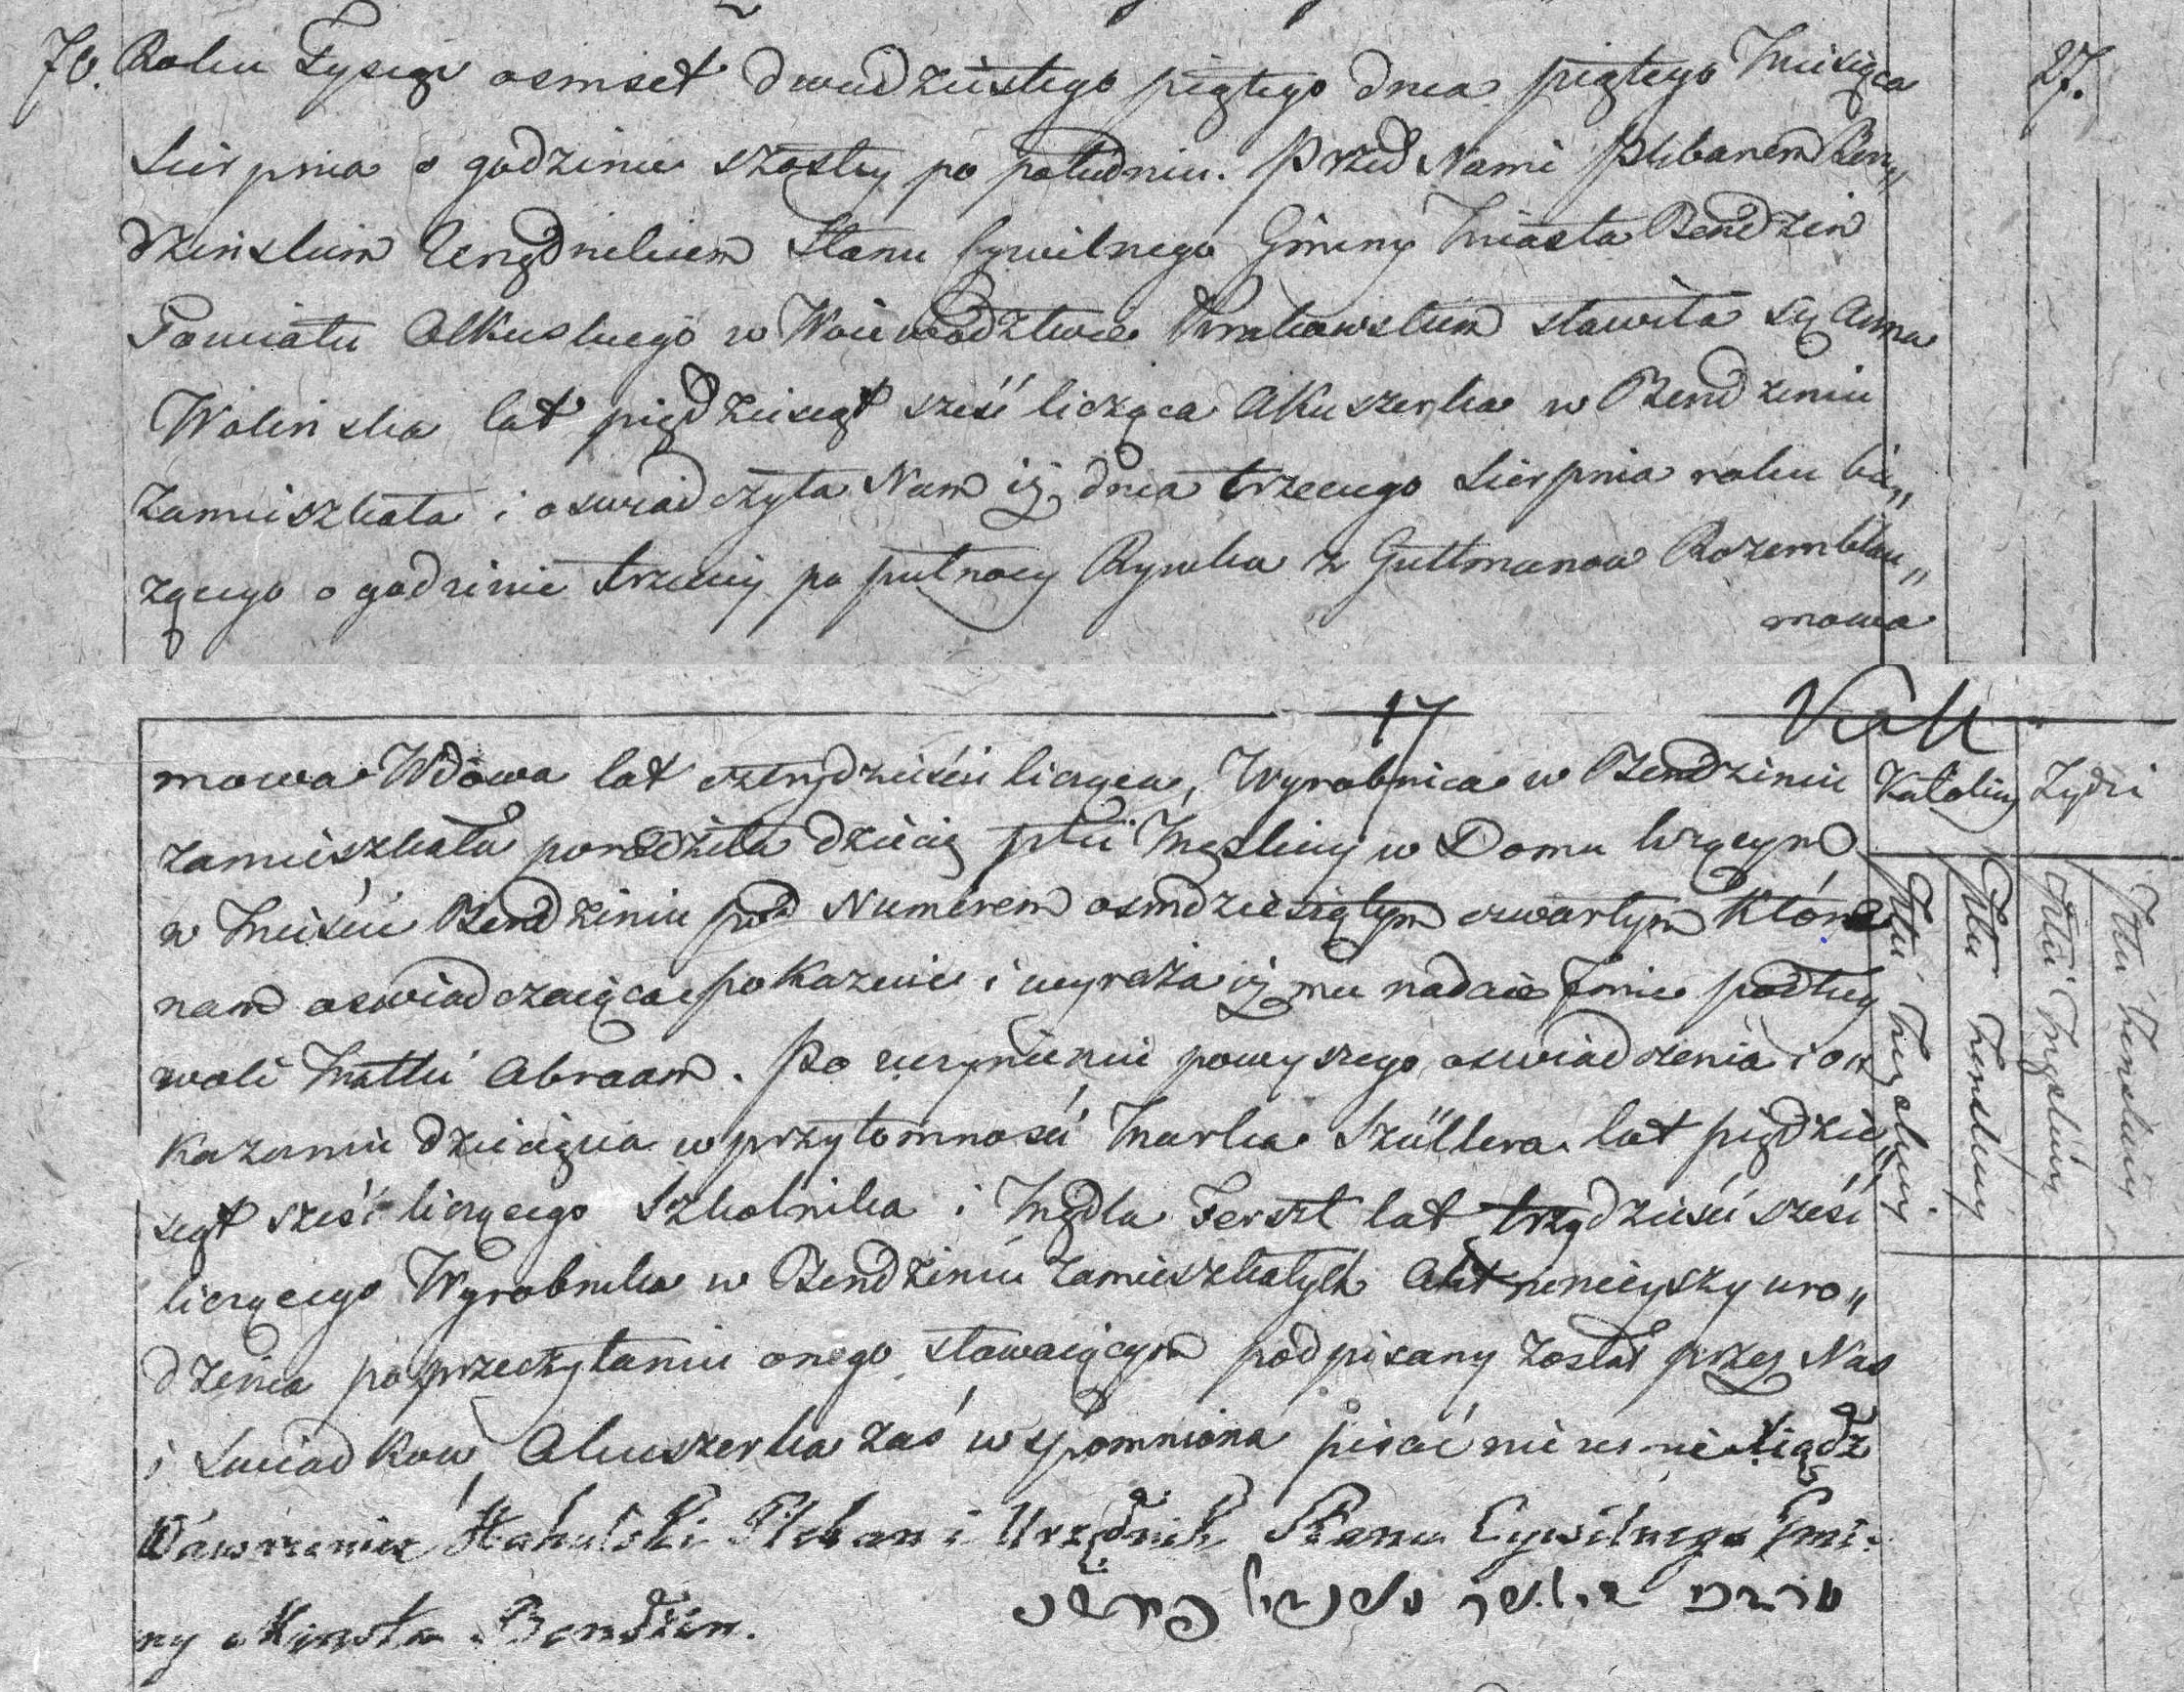 70. Roku Tysiąc osmset dwudziestego piątego dnia piątego Miesiąca 27.
Sierpnia o godzinie szostey po południu. Przed Nami Plebanem Ben„
dzinskim Urzędnikiem Stanu Cywilnego Gminy Miasta Bendzin
Powiatu Olkuskiego w Woiewodztwie Krakowskim stawiła się Anna
Wolinska lat pięćdziesiąt sześć licząca Akuszerka w Bendzinie
Zamieszkała i oswiadczyła Nam iż dnia trzeciego Sierpnia roku bie„
zącego o godzinie trzeciej po pułnocy Rywka z Guttmanow Rozemblu„
mowa
17
mowa Wdowa lat czterydzieści licząca, Wyrobnica w Bendzinie
Zamieszkała porodziła dziecię płci Męskiej w Domu
w Mieście Bendzinie pod Numerem osmdziesiątym czwartym Które
nam oswiadczaiąca pokazuie i wyraża iż mu nadaie Jmie podług
woli Matki Abraam. Po uczynieniu powyszego oswiadczenia i o
kazaniu dziecięcia w przytomności Marka Szüllera lat pięćdzie„
siąt sześć liczącego Szkolnika i Mędla Ferszt lat trzydzieści sześć
liczącego Wyrobnika w Bendzinie Zamieszkałych Akt ninieyszy uro„
dzenia po przeczytaniu onego stawaiącym podpisany został przez Nas
i Swiadkow Akuszerka zaś wspomniona pisać nie umie Xiądz
Wawrzeniec Pleban i Urzędnik Stanu Cywilnego Gmi-
ny Miasta Bendzin.
Katolicy Zydzi
Płci Męskiey
Płci Zenskiey
Płci Męskiey
Płci Zenskiey